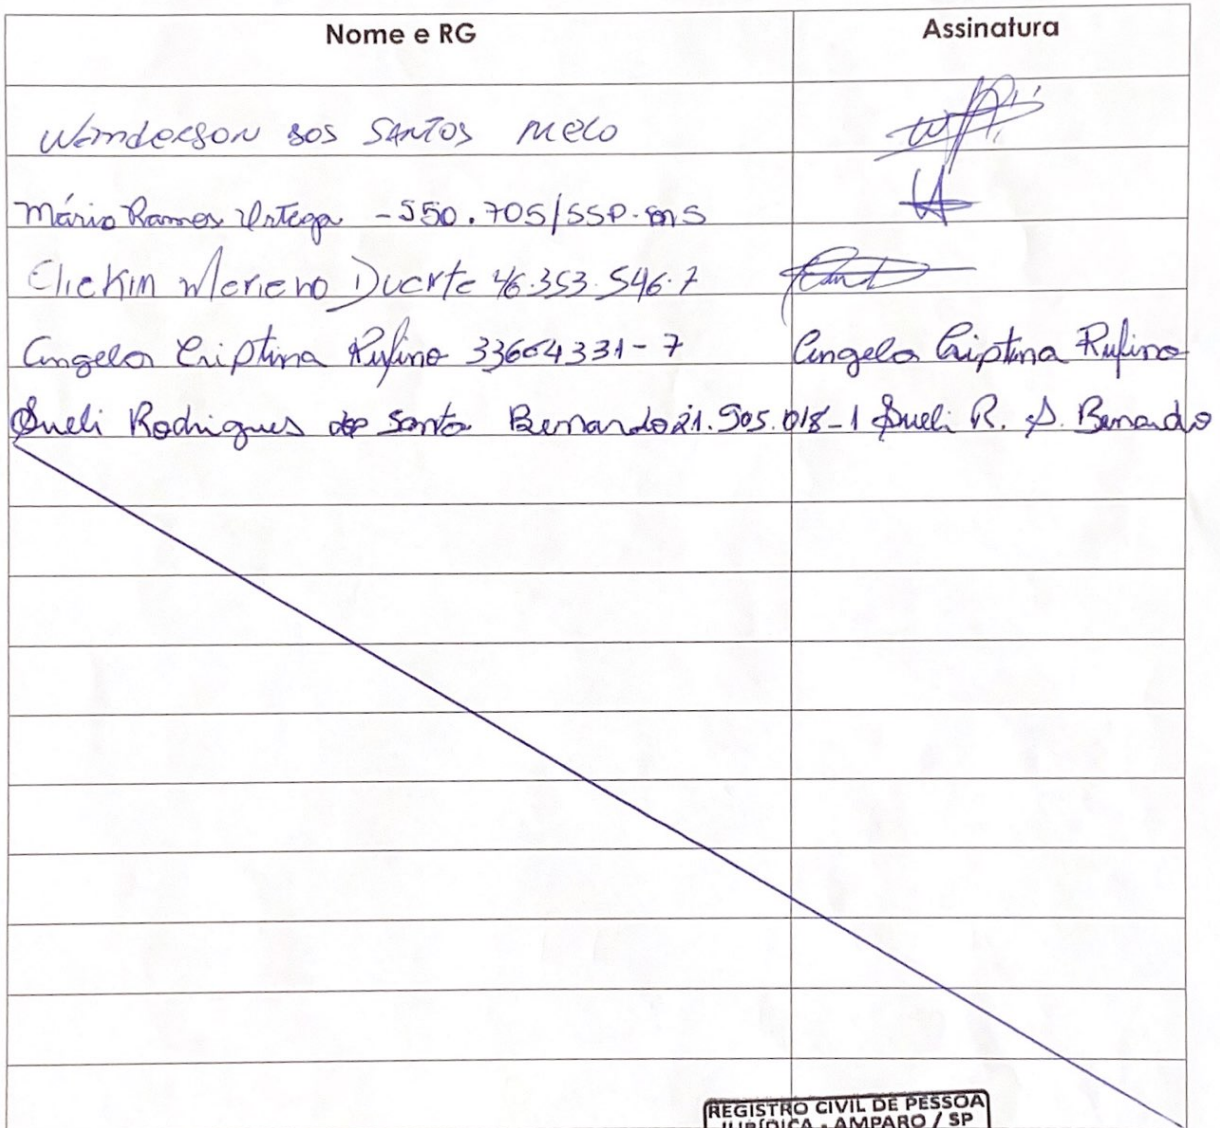 Nome e RG Assinatura
Wanderson dos Santos Melo
Mário Ramos Ortega - 550.705/SSP-MS
Moreno Duarte 46.353.546-7
Angela Cristina Rufino 33664331-7 Angela Cristina Rufino
Sueli Rodrigues dos Santos Bernardo 21.505.018-1 Sueli R. S. Bernardo
REGISTRO CIVIL DE PESSOA
JURÍDICA - AMPARO / SP